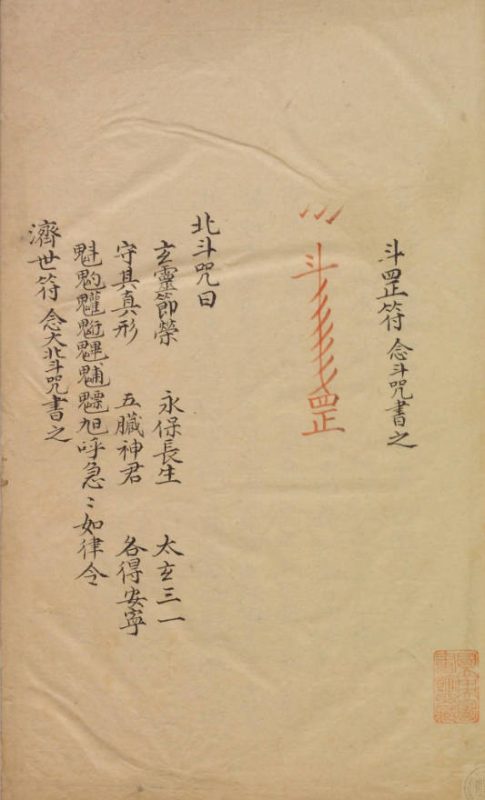 斗罡符 念斗咒書之
斗罡
北斗咒曰
玄靈節榮 永保長生 太玄三一
守具真形 五臟神君 各得安寧
魁𩲃䰢魓䰢魒旭呼急〻如律令
濟世符 念大北斗咒書之